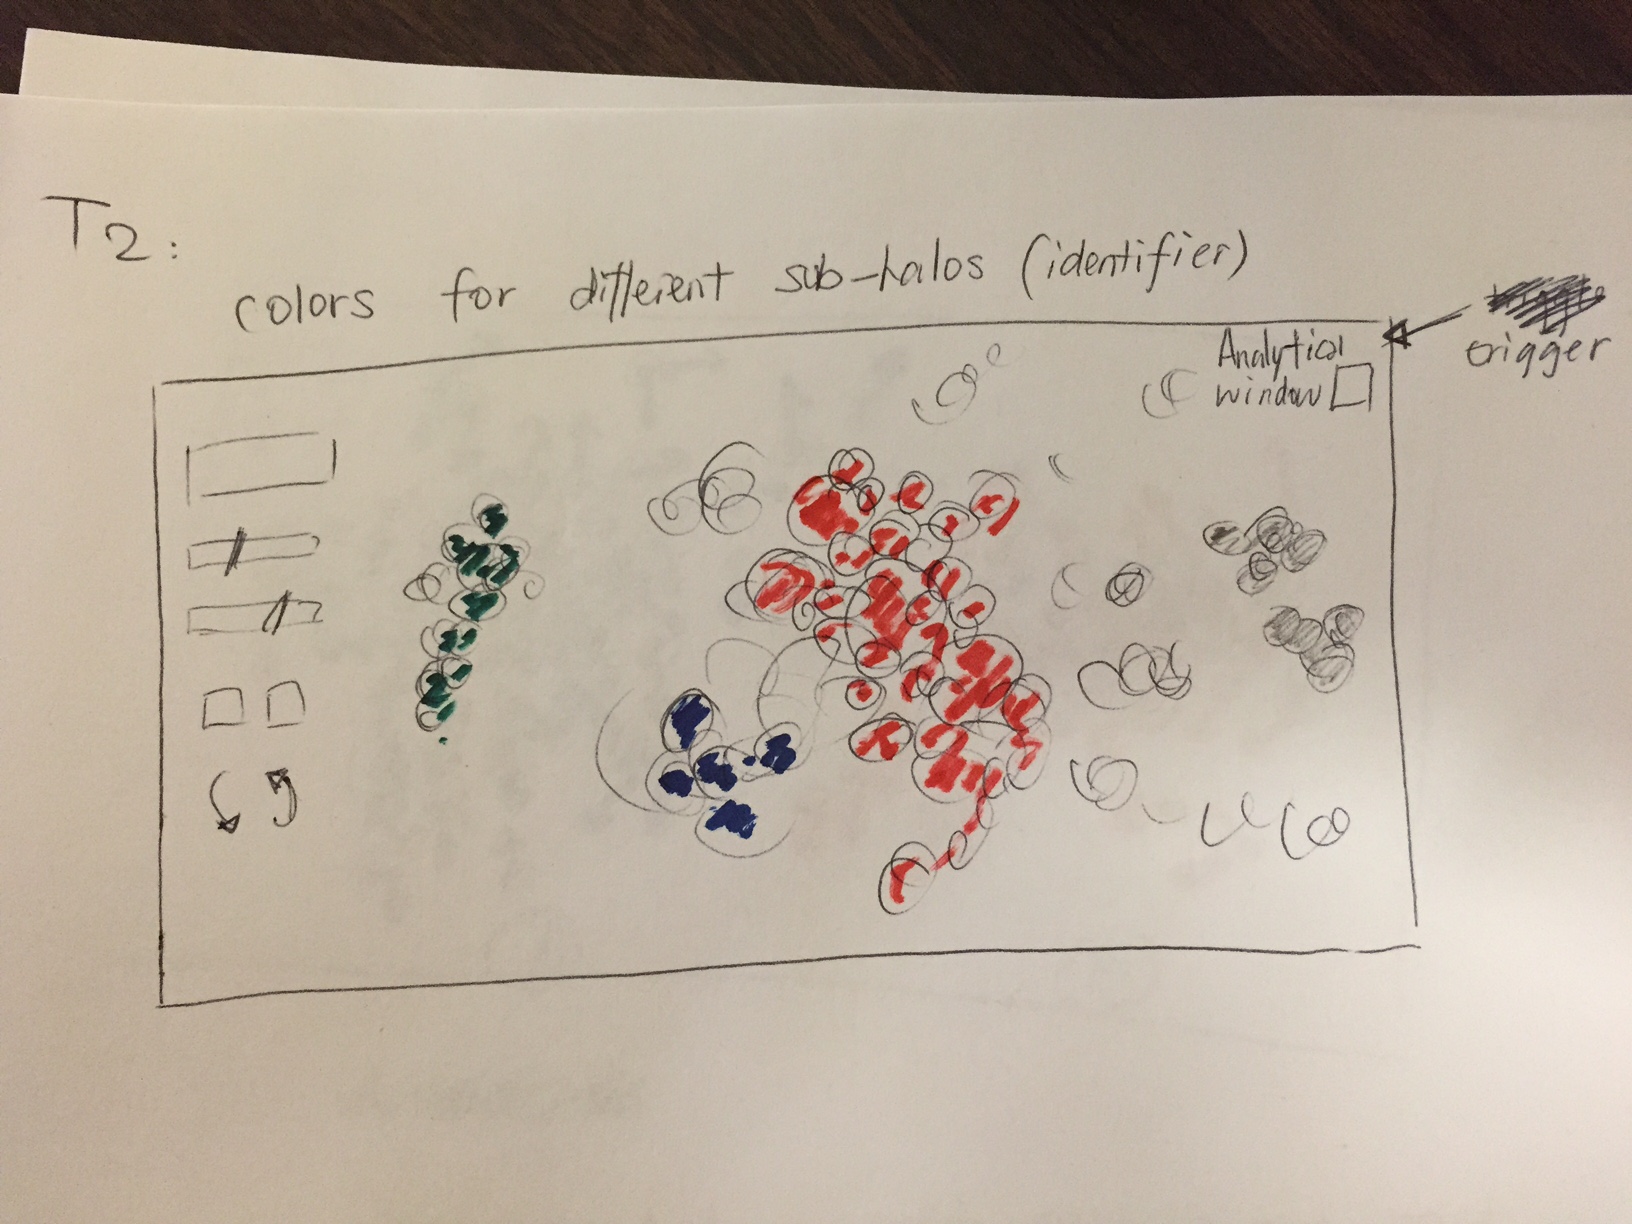 T2:
colors for different sub-halos (identifier)
Analytical
window
trigger